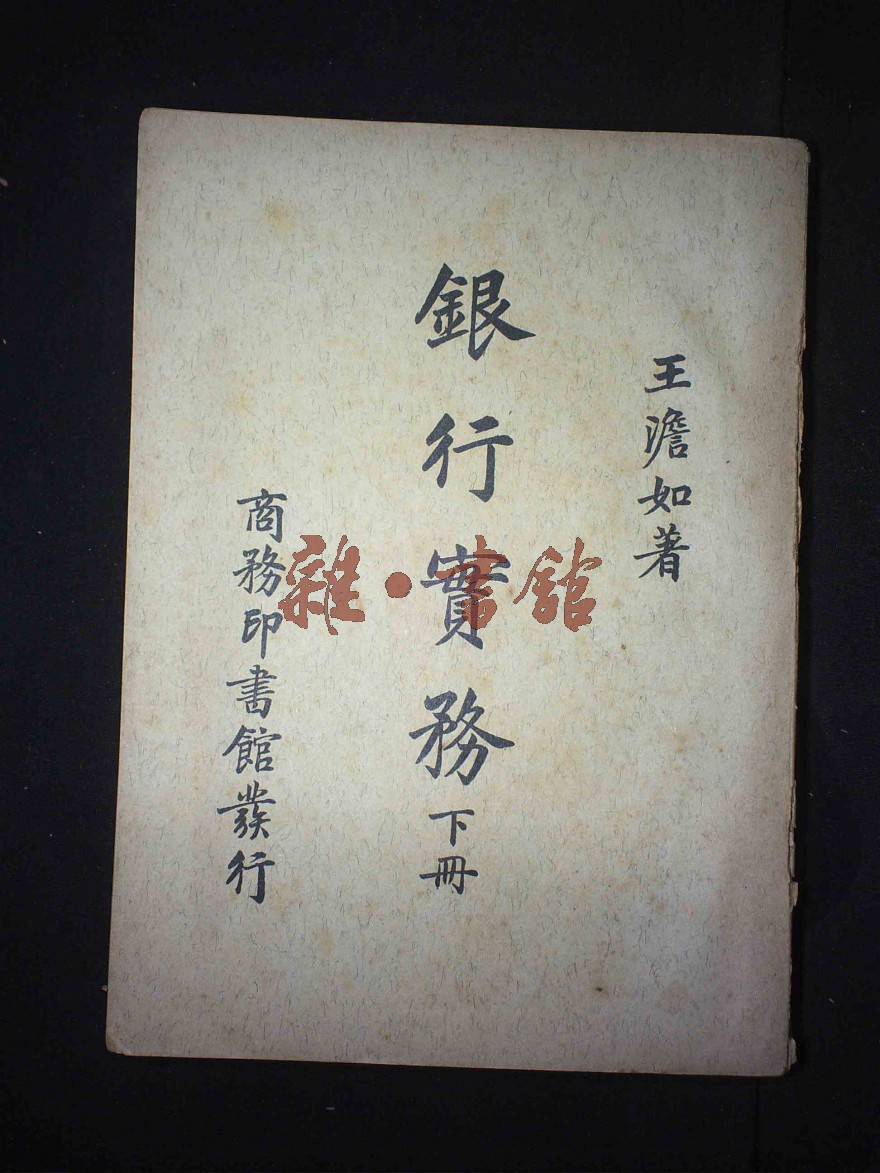 王澹如著
銀行實務下冊
商務印書館發行
雜·書館